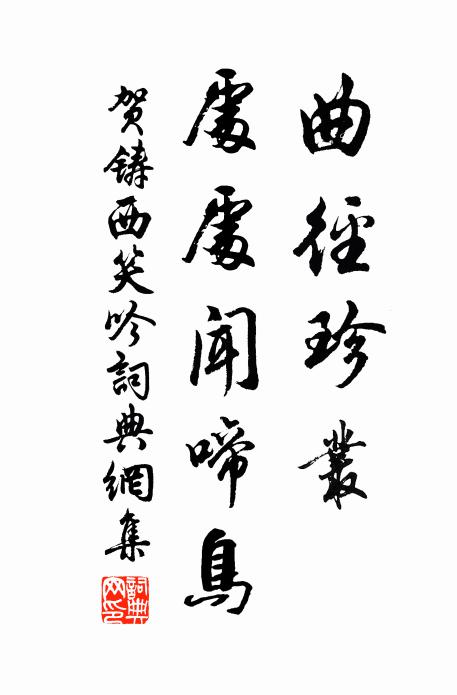 曲徑珍叢
處處聞啼鳥
贺鑄西笑吟詞典網集
詞典网印